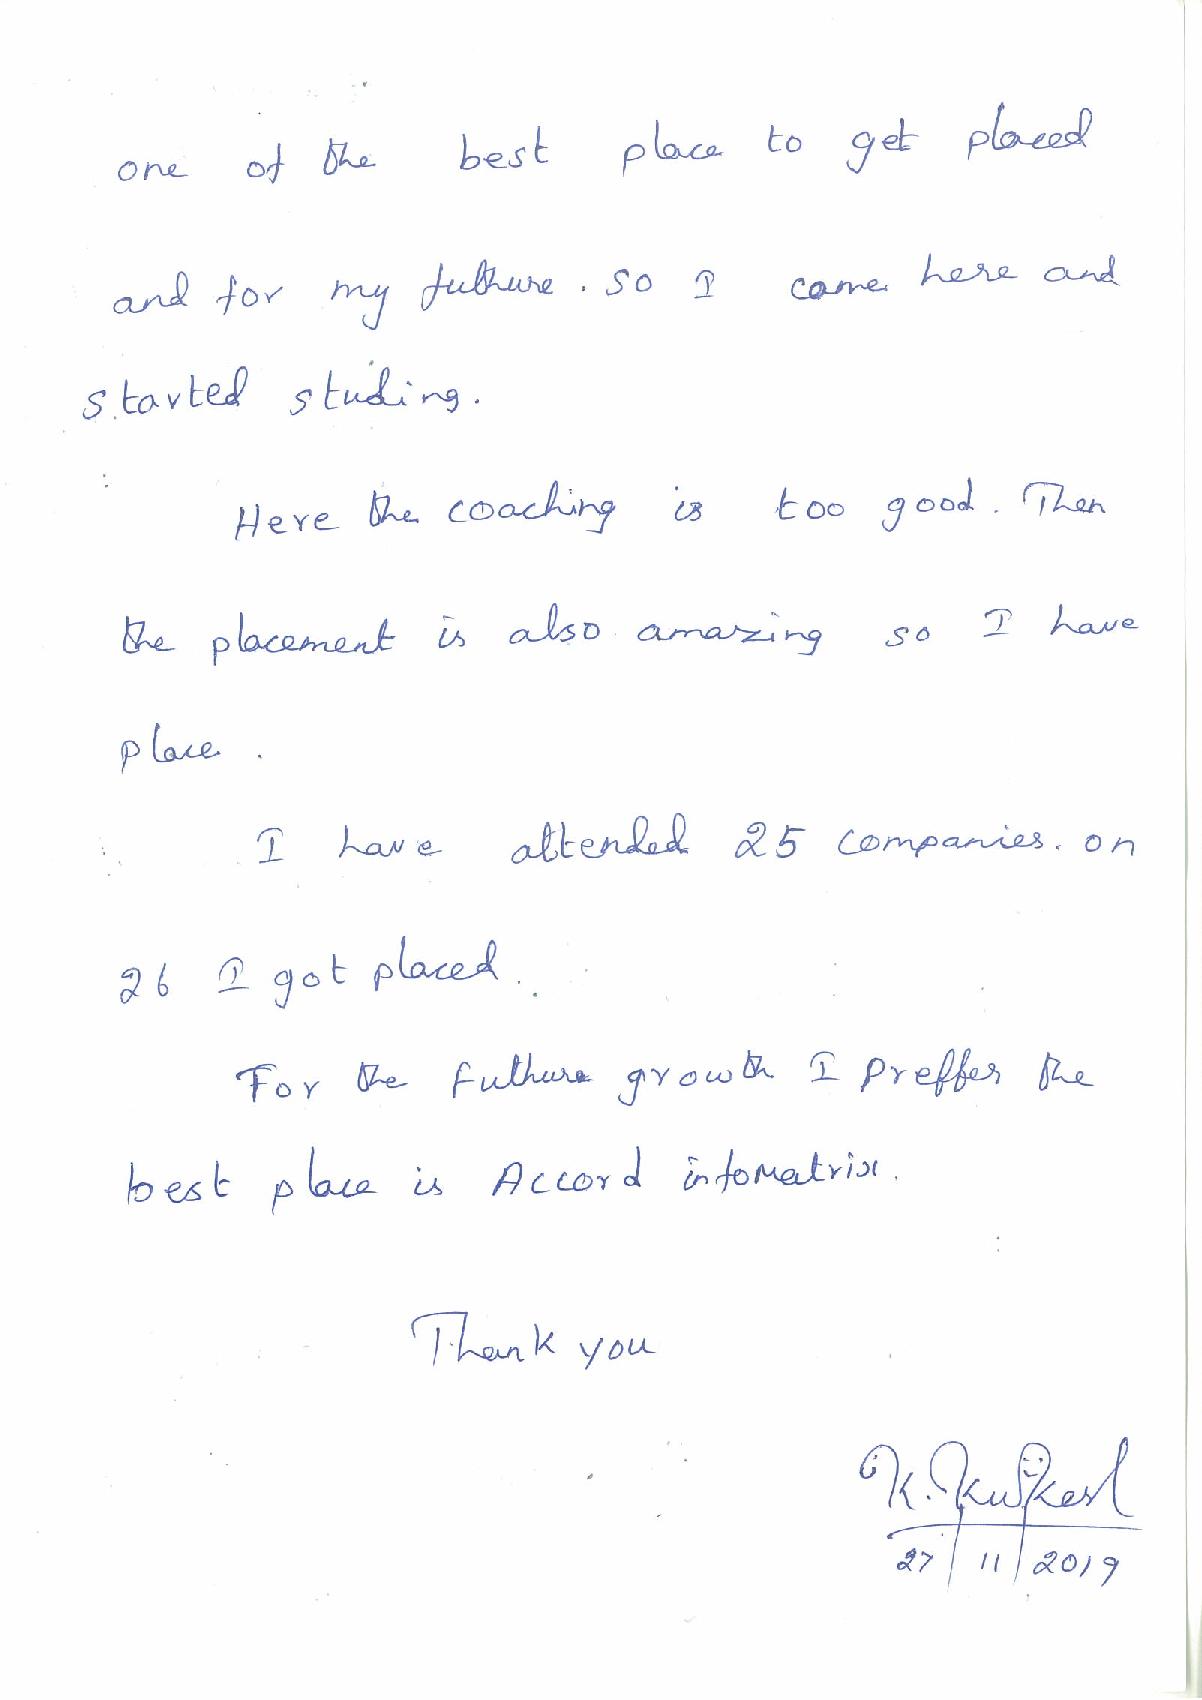 one of the best place to get placed
and for my futhure. so I came here and
started studing.
Here the coaching is too good. Then
the placement is also amazing so I have
place.
I have attended 25 companies. on
26 I got placed.
For the futhure growth I preffer the
best place is Accord infomatrix.
Thank you
K.
27/11/2019